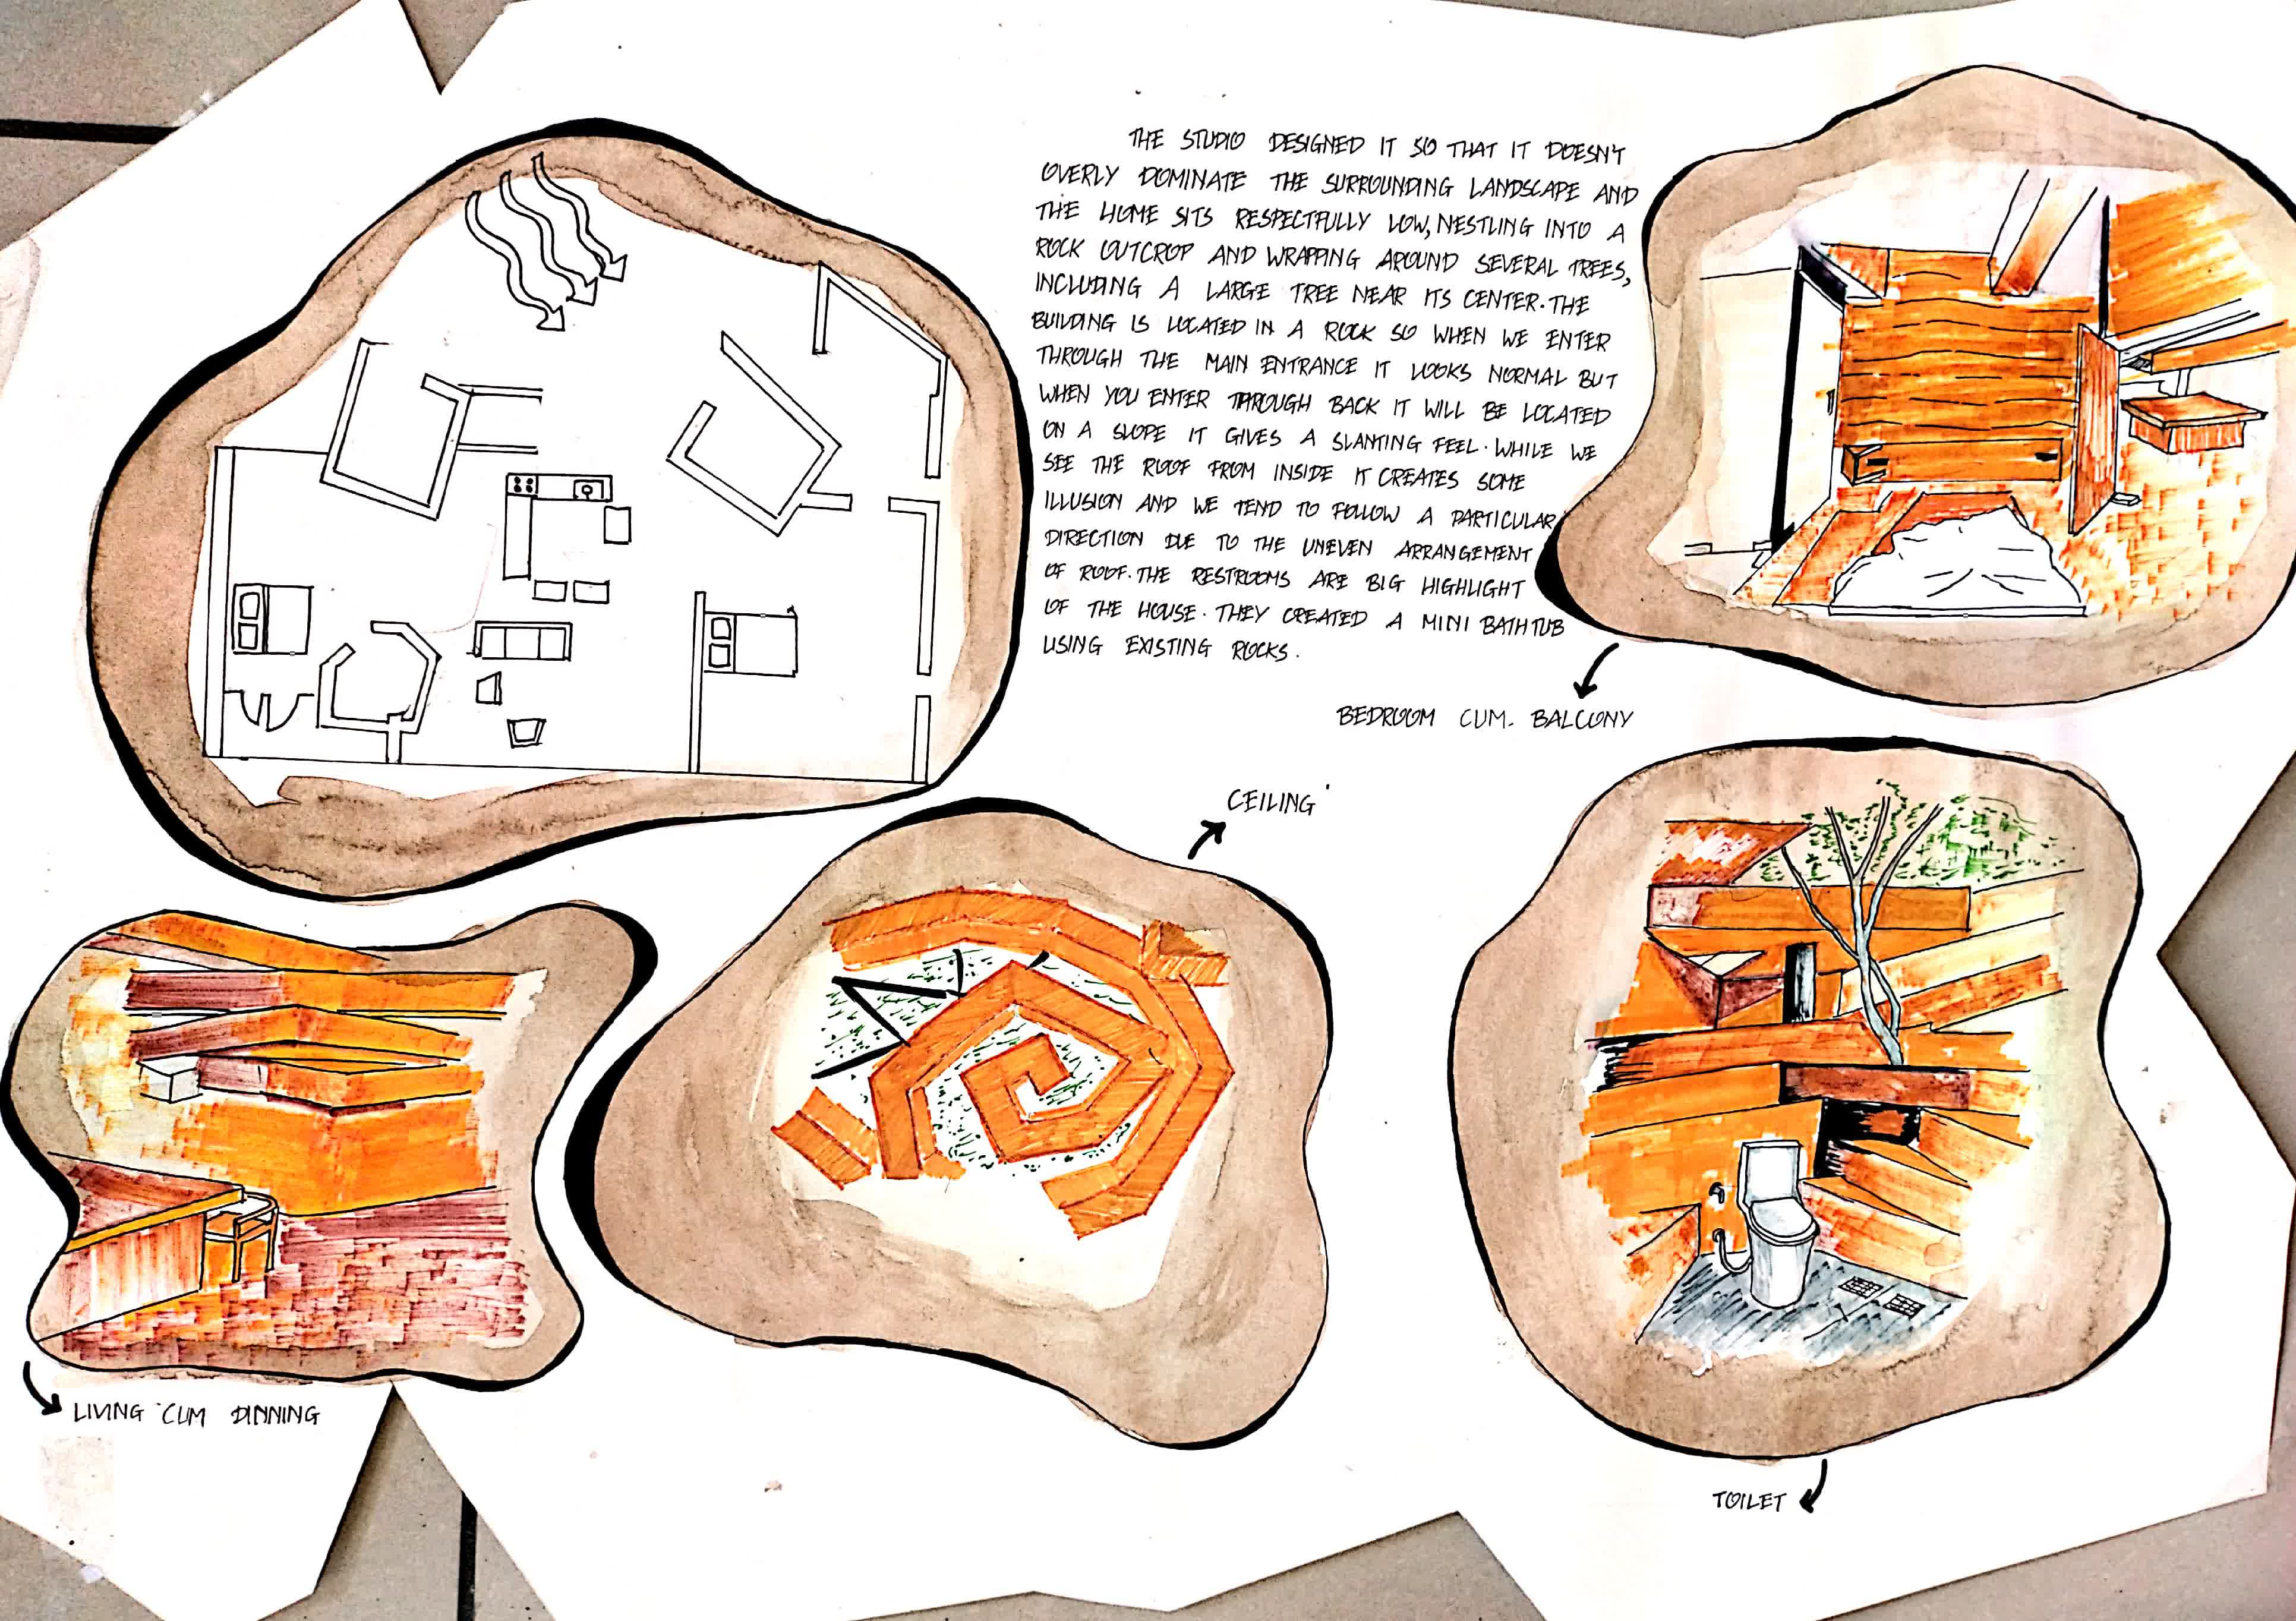 THE STUDIO DESIGNED IT SO THAT IT DOESN'T
OVERLY DOMINATE THE SURROUNDING LANDSCAPE AND
THE HOME SITS RESPECTFULLY LOW, NESTLING INTO A
ROCK OUTCROP AND WRAPPING AROUND SEVERAL TREES,
INCLUDING A LARGE TREE NEAR ITS CENTER. THE
BUILDING IS LOCATED IN A ROCK SO WHEN WE ENTER
THROUGH THE MAIN ENTRANCE IT LOOKS NORMAL BUT
WHEN YOU ENTER THROUGH BACK IT WILL BE LOCATED
ON A SLOPE IT GIVES A SLANTING FEEL. WHILE WE
SEE THE ROOF FROM INSIDE IT CREATES SOME
ILLUSION AND WE TEND TO FOLLOW A PARTICULAR
DIRECTION DUE TO THE UNEVEN ARRANGEMENT
OF ROOF. THE RESTROOMS ARE BIG HIGHLIGHT
OF THE HOUSE. THEY CREATED A MINI BATHTUB
USING EXISTING ROCKS.
BEDROOM CUM. BALCONY
CEILING
LIVING CUM DINNING
TOILET